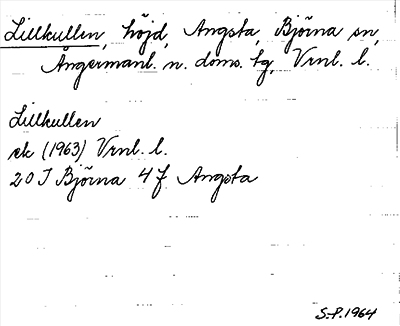 Lillkullen, höjd, Angsta, Björna sn,
Ångermanl. n. doms. tg, Vrnl. l.
Lillkullen
ek (1963) Vrnl. l.
20 I Björna 4 f Angsta
S.P. 1964